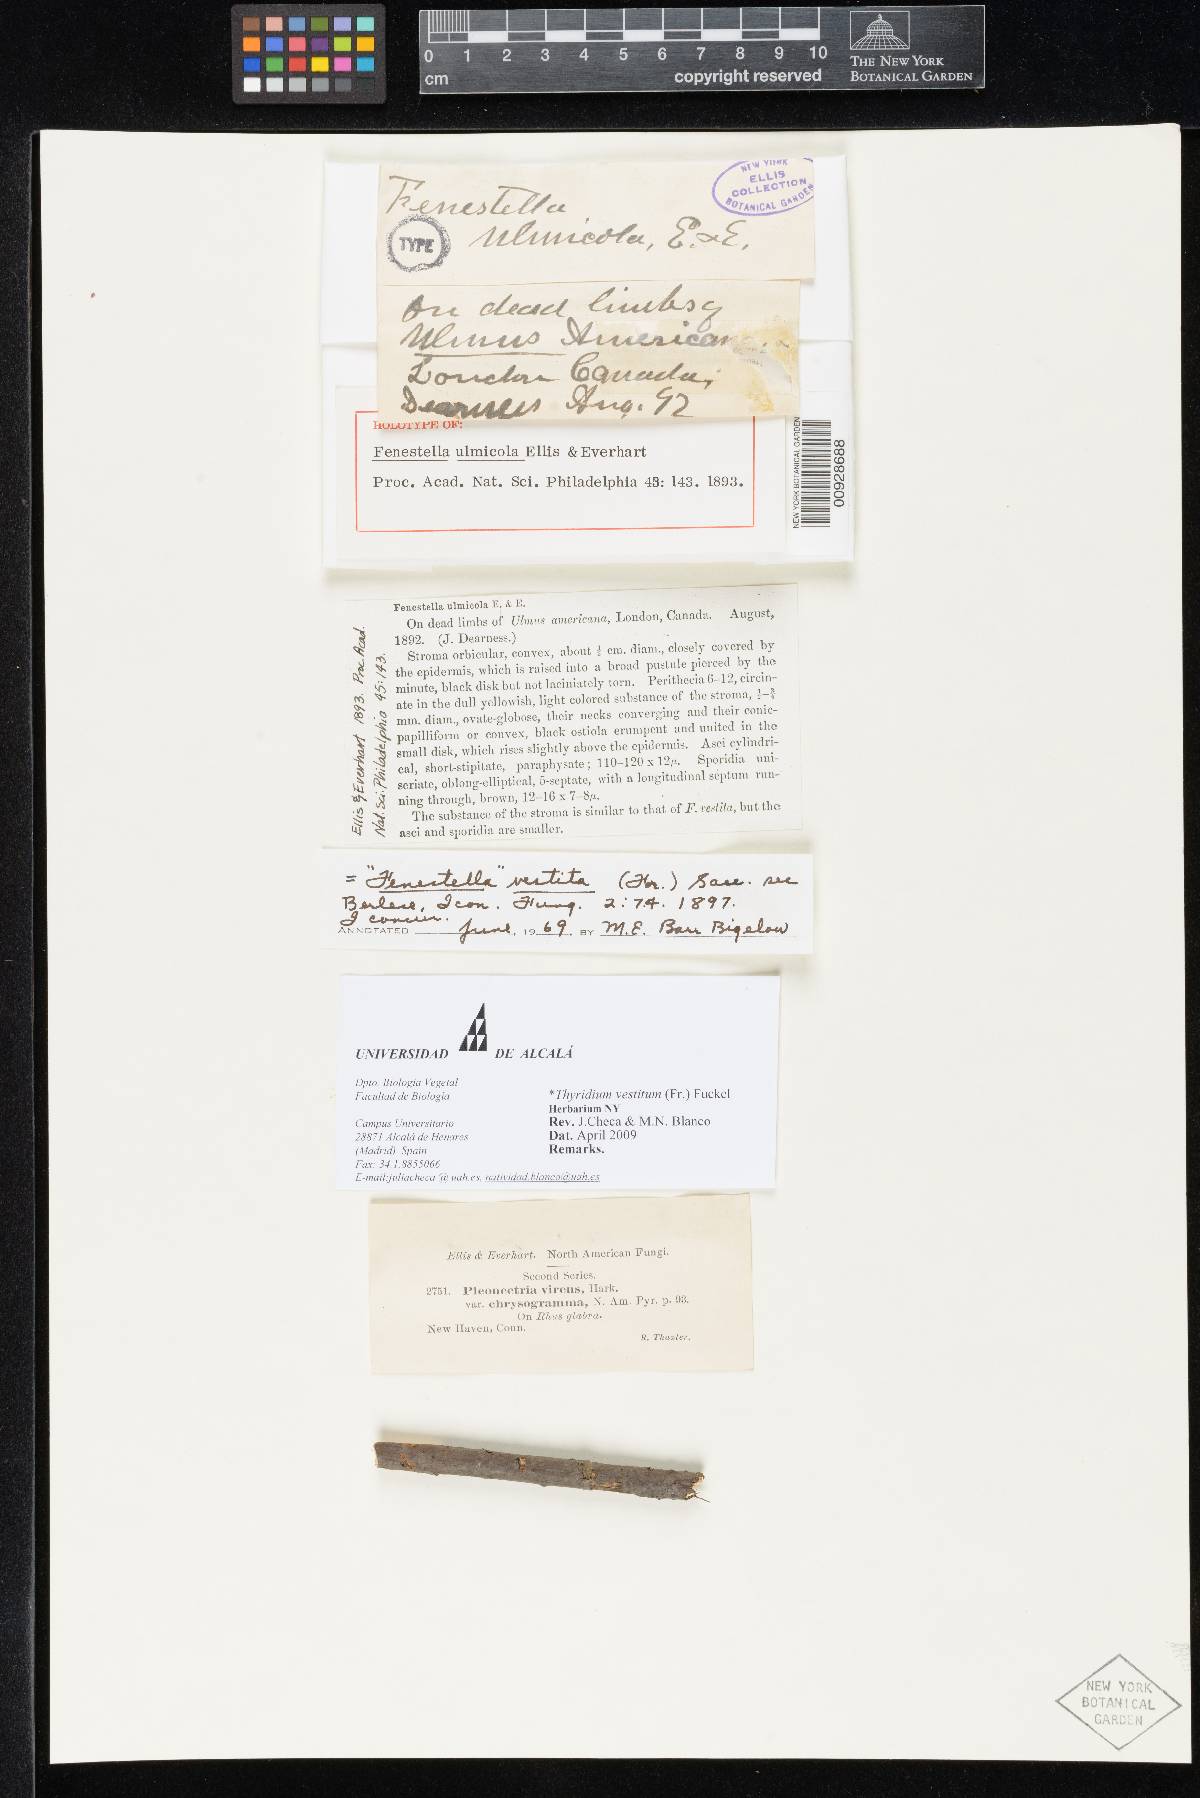 0 1 2 3 4 5 6 7 8 9 10
cm
copyright reserved
THE NEW YORK
BOTANICAL GARDEN
NEW YORK
ELLIS
COLLECTION
BOTANICAL GARDEN
Fenestella
TYPE
Ulmicola, E. & E.
On dead limbs of
Ulmus American
London Canada,
Dearness Aug. 92
HOLOTYPE OF:
Fenestella ulmicola Ellis & Everhart
Proc. Acad. Nat. Sci. Philadelphia 45: 143. 1893.
NEW YORK BOTANICAL GARDEN
00928688
Ellis & Everhart 1893. Proc. Acad.
Nat. Sci. Philadelphia 45: 143.
Fenestella ulmicola E. & E.
On dead limbs of Ulmus americana, London, Canada. August,
1892. (J. Dearness.)
Stroma orbicular, convex, about ¼ cm. diam., closely covered by
the epidermis, which is raised into a broad pustule pierced by the
minute, black disk but not laciniately torn. Perithecia 6–12, circin-
ate in the dull yellowish, light colored substance of the stroma,
mm. diam., ovate-globose, their necks converging and their conic-
papilliform or convex, black ostiola erumpent and united in the
small disk, which rises slightly above the epidermis. Asci cylindri-
cal, short-stipitate, paraphysate; 110–120 x 12µ. Sporidia uni-
seriate, oblong-elliptical, 5-septate, with a longitudinal septum run-
ning through, brown, 12–16 x 7–8µ.
The substance of the stroma is similar to that of F. vestita, but the
asci and sporidia are smaller.
= "Fenestella" vestita (Fr.) Sacc. sec
Berlese, Icon. Fung. 2:74. 1897.
I concur.
ANNOTATED June, 1969. BY M.E. Barr Bigelow
UNIVERSIDAD DE ALCALÁ
Dpto. Biología Vegetal
Facultad de Biología
Campus Universitario
28871 Alcalá de Henares
(Madrid) Spain
Fax: 34.1.8855066
E-mail:juliacheca @ uah.es, natividad.blanco@uah.es
*Thyridium vestitum (Fr.) Fuckel
Herbarium NY
Rev. J.Checa & M.N. Blanco
Dat. April 2009
Remarks.
Ellis & Everhart. North American Fungi.
Second Series.
2751. Pleonectria virens, Hark.
var. chrysogramma, N. Am. Pyr. p. 93.
On Rhus glabra.
New Haven, Conn.
R. Thaxter.
NEW YORK
BOTANICAL
GARDEN